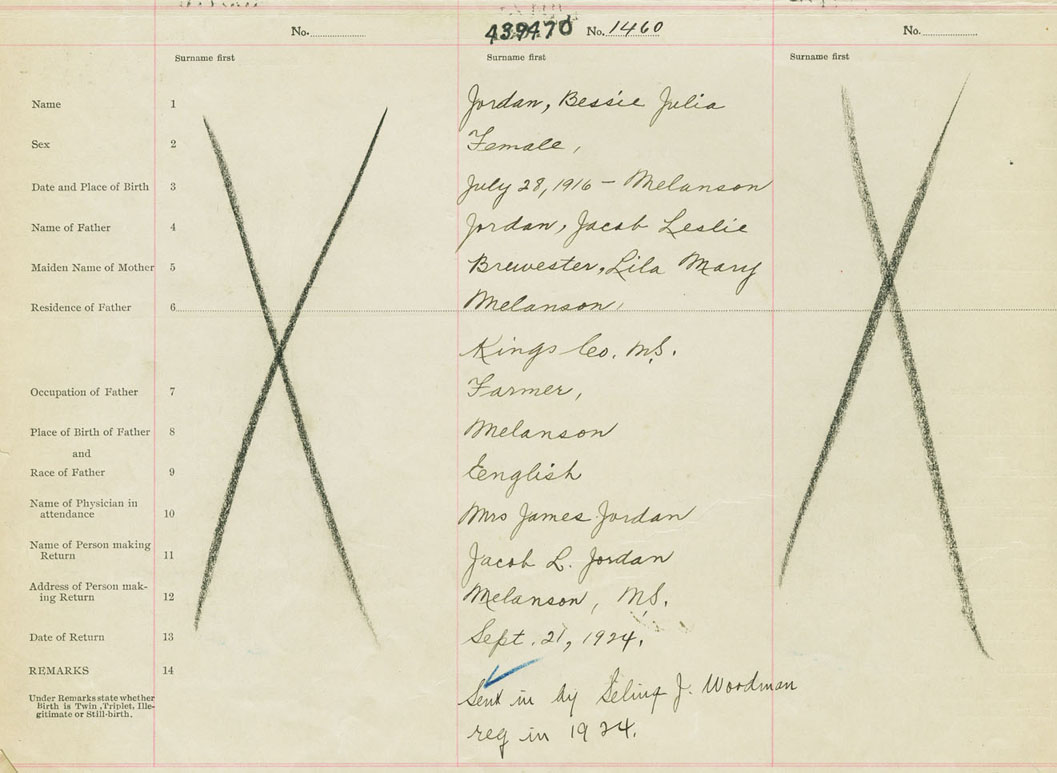 No. 439470 No. 1460 No.
Surname first Surname first Surname first
Name 1 Jordan, Bessie Julia
Sex 2 Female,
Date and Place of Birth 3 July 28, 1916 - Melanson
Name of Father 4 Jordan, Jacob Leslie
Maiden Name of Mother 5 Brewester, Lila Mary
Residence of Father 6 Melanson,
Kings Co. N.S.
Occupation of Father 7 Farmer,
Place of Birth of Father 8 Melanson
and
Race of Father 9 English
Name of Physician in
attendance 10 Mrs James Jordan
Name of Person making
Return 11 Jacob L. Jordan
Address of Person mak-
ing Return 12 Melanson, N.S.
Date of Return 13 Sept. 21, 1924.
REMARKS 14
Under Remarks state whether
Birth is Twin, Triplet, Ille-
gitimate or Still-birth.
Sent in by J. Woodman
reg in 1924.